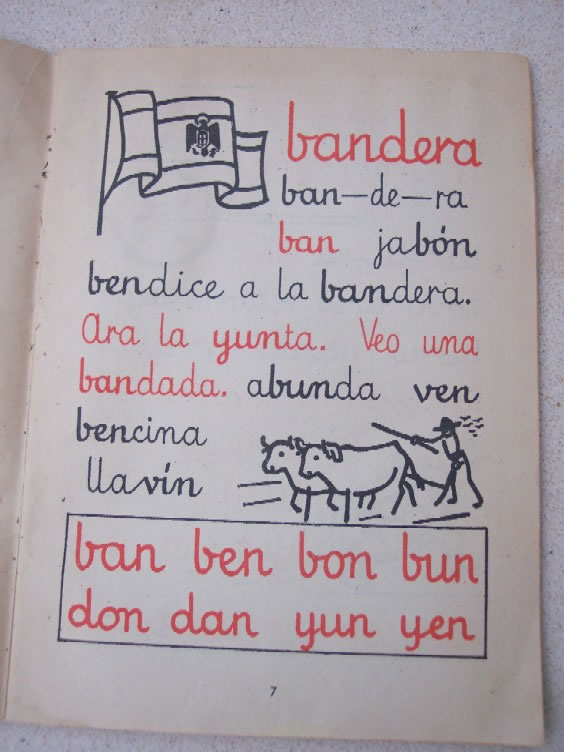 bandera
ban—de—ra
ban jabón
bendice a la bandera.
Ara la yunta. Veo una
bandada. abunda ven
bencina
llavín
ban ben bon bun
don dan yun yen
7